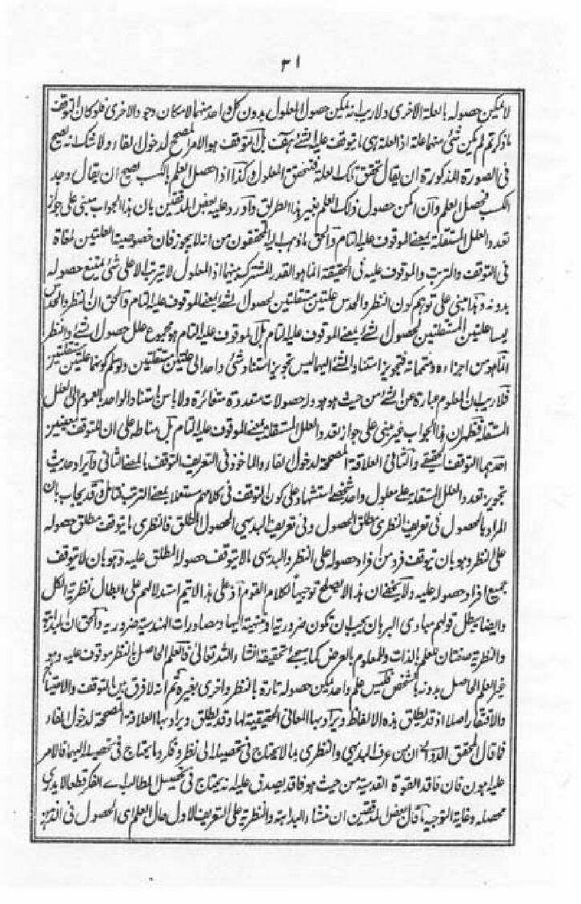 ٣١
لا يمكن حصوله بالعلة الاخرى ولا ريب انه يمكن حصول المعلول بدون كل واحد منهما لامكان وجود الاخرى فلو كان التوقف
ما ذكرتم لم يكن شئ منهما علة اذ العلة هى ما يتوقف عليه الشئ بل التوقف هو الامر المصحح لدخول الفاء ولا شك انه يصح
فى الصورة المذكورة ان يقال تحقق تلك العلة فتحقق المعلول وكذا اذا حصل العلم بالكسب يصح ان يقال وجد
الكسب فحصل العلم وان امكن حصول ذلك العلم بغير هذا الطريق واورد عليه بعض المدققين بان هذا الجواب مبنى على جواز
تعدد العلل المستقلة بمعنى الموقوف عليه التام والحق ما ذهب اليه المحققون من انه لا يجوز فان خصوصية العلتين ملغاة
فى التوقف والترتب والموقوف عليه فى الحقيقة انما هو القدر المشترك بينهما اذ المعلول لا يترتب الا على شئ يمتنع حصوله
بدونه وهذا مبنى على توهم كون النظر والحدس علتين مستقلتين لحصول الشئ بمعنى الموقوف عليه التام والحق ان النظر والحدس
ليسا علتين مستقلتين لحصول الشئ بمعنى الموقوف عليه التام بل الموقوف عليه التام هو مجموع علل حصول الشئ والنظر
انما هو من اجزاءه ومتمماته فتجويز استناد الشئ اليهما ليس تجويز استناد شئ واحد الى علتين مستقلتين ولو سلم كونهما علتين مستقلتين
فلا ريب ان المعلوم عبارة عن الشئ من حيث هو هو وله حصولات متعددة متغائرة ولا باس باستناد الواحد بالعموم الى العلل
المستقلة فظهر ان هذا الجواب غير مبنى على جواز تعدد العلل المستقلة بمعنى الموقوف عليه التام بل مناطه على ان للتوقف معنيين
احدهما التوقف الحقيقى والثانى العلاقة المصححة لدخول الفاء والماخوذ فى التعريف التوقف بالمعنى الثانى وايراد حديث
تجويز تعدد العلل المستقلة على معلول واحد شخصى استشهاد على كون التوقف فى كلامهم مستعملا بمعنى الترتب فتامل قد يجاب بان
المراد بالحصول فى تعريف النظرى مطلق الحصول وفى تعريف البديهى الحصول المطلق فالنظرى ما يتوقف مطلق حصوله
على النظر وهو بان يتوقف فرد من افراد حصوله على النظر والبديهى ما لا يتوقف حصوله المطلق عليه وهو بان لا يتوقف
جميع افراد حصوله عليه ولا يخفى ان هذا لا يصلح توجيها لكلام القوم اذ على هذا لا يتم استدلالهم على ابطال نظرية الكل
وايضا يبطل قولهم مبادى البرهان يجب ان تكون ضرورية او منتهية اليها ومصادرات الهندسية ضرورية والحق ان البداهة
والنظرية صفتان للعلم بالذات وللمعلوم بالعرض كما سيجئ تحقيقه انشاء الله تعالى فالعلم الحاصل بالنظر موقوف عليه وهو
غير العلم الحاصل بدونه بالشخص فليس علم واحد يمكن حصوله تارة بالنظر واخرى بغيره ثم انه لا فرق بين التوقف والاحتياج
والافتقار اصلا اذ قد يطلق هذه الالفاظ ويراد بها المعانى الحقيقية لها وقد يطلق ويراد بها العلاقة المصححة لدخول الفاء
فما قال المحقق الدوانى ان من عرف البديهى والنظرى بما لا يحتاج فى تحصيله الى نظر وفكر وما يحتاج فى تحصيله اليهما فالامر
عليه هين فان فاقد القوة القدسية من حيث هو فاقد يصدق عليه انه يحتاج فى تحصيل المطالب الى الفكر قطعا لا يدرى
محصله وغاية التوجيه ما قال بعض المدققين ان منشاء البداهة والنظرية على التعريف الاول حال العلم اى الحصول فى الذهن